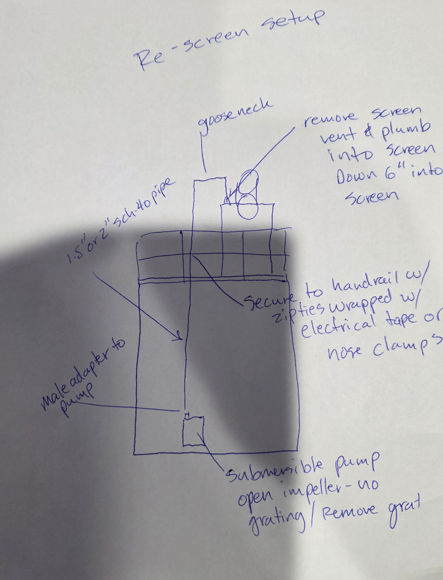 Re-screen setup
gooseneck
remove screen
vent & plumb
into screen
Down 6" into
screen
1.5" or 2" sch 40 pipe
secure to handrail w/
zipties wrapped w/
electrical tape or
hose clamps
male adapter to
pump
submersible pump
open impeller - no
grating / Remove grat